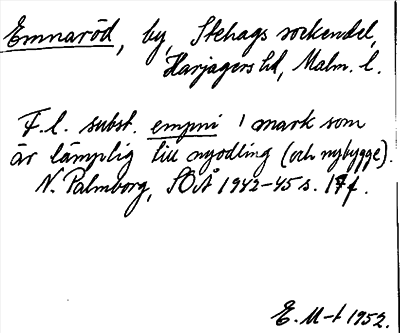 Emnaröd, by, Stehags sockendel,
Harjagers hd, Malm. l.
F.l. subst. empni 'mark som
är lämplig till nyodling (och nybygge).
N. Palmborg, SOÅ 1942-45 s. 17f.
E. M-t 1952.